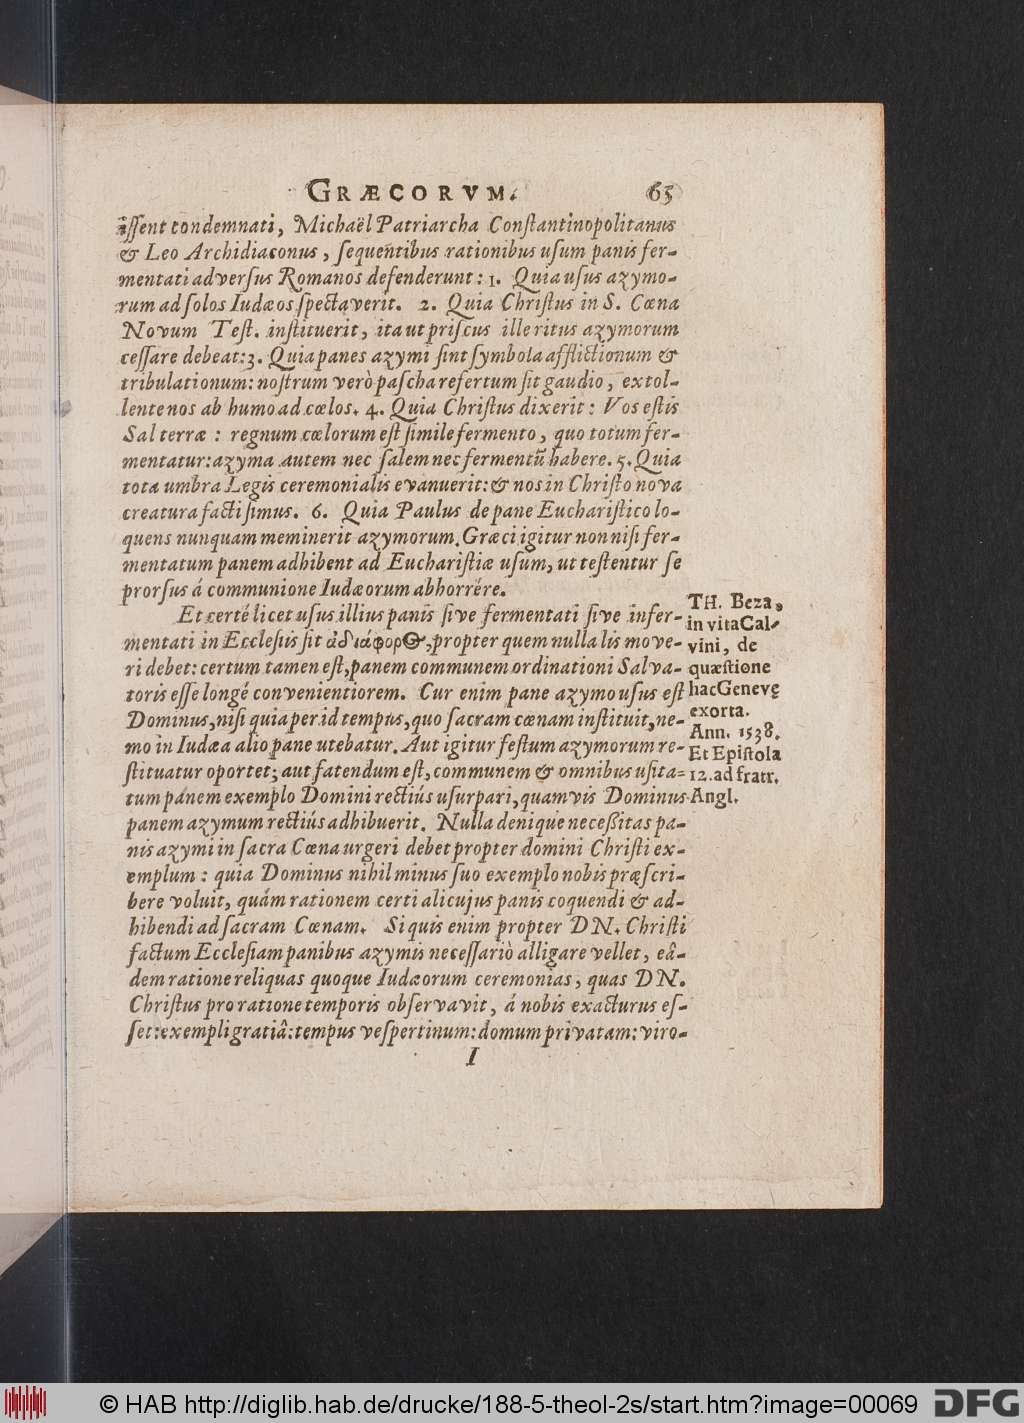 GRÆCORVM. 65
issent condemnati, Michaël Patriarcha Constantinopolitanus
& Leo Archidiaconus, sequentibus rationibus usum panis fer-
mentati adversus Romanos defenderunt: 1. Quia usus azymo-
rum ad solos Iudæos spectaverit. 2. Quia Christus in S. Cœna
Novum Test. instituerit, ita ut priscus ille ritus azymorum
cessare debeat: 3. Quia panes azymi sint symbola afflictionum &
tribulationum: nostrum verò pascha refertum sit gaudio, extol-
lente nos ab humo ad cœlos. 4. Quia Christus dixerit: Vos estis
Sal terræ: regnum cœlorum est simile fermento, quo totum fer-
mentatur: azyma autem nec salem nec fermentũ habere. 5. Quia
tota umbra Legis ceremonialis evanuerit: & nos in Christo nova
creatura facti simus. 6. Quia Paulus de pane Eucharistico lo-
quens nunquam meminerit azymorum. Græci igitur non nisi fer-
mentatum panem adhibent ad Eucharistiæ usum, ut testentur se
prorsus á communione Iudæorum abhorrére.
Et certé licet usus illius panis sive fermentati sive infer-
mentati in Ecclesiis sit ἀδιάφορος, propter quem nulla lis move-
ri debet: certum tamen est, panem communem ordinationi Salva-
toris esse longé convenientiorem. Cur enim pane azymo usus est
Dominus, nisi quia per id tempus, quo sacram cœnam instituit, ne-
mo in Iudæa alio pane utebatur. Aut igitur festum azymorum re-
stituatur oportet; aut fatendum est, communem & omnibus usita-
tum panem exemplo Domini rectiús usurpari, quamvis Dominus
panem azymum rectiús adhibuerit. Nulla denique necessitas pa-
nis azymi in sacra Cœna urgeri debet propter domini Christi ex-
emplum: quia Dominus nihil minus suo exemplo nobis præscri-
bere voluit, quám rationem certi alicujus panis coquendi & ad-
hibendi ad sacram Cœnam. Si quis enim propter DN. Christi
factum Ecclesiam panibus azymis necessariò alligare vellet, eâ-
dem ratione reliquas quoque Iudæorum ceremonias, quas DN.
Christus pro ratione temporis observavit, á nobis exacturus es-
set: exempli gratiâ: tempus vespertinum: domum privatam: viro-
I
TH. Beza,
in vita Cal-
vini, de
quæstione
hac Genevę
exorta.
Ann. 1538.
Et Epistola
12. ad fratr.
Angl.
© HAB http://diglib.hab.de/drucke/188-5-theol-2s/start.htm?image=00069
DFG